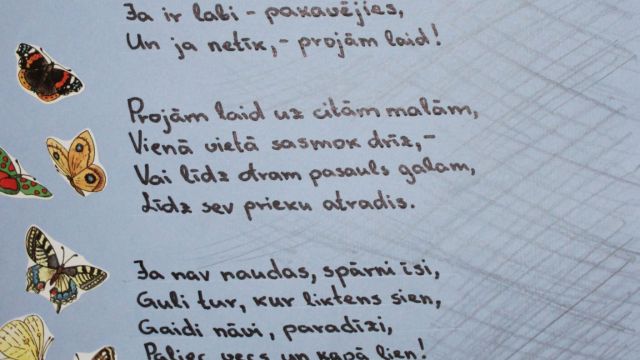 Ja ir labi - pakavējies,
Un ja netīk,- projām laid!
Projām laid uz citām malām,
Vienā vietā sasmok drīz,-
Vai līdz otram pasauls galam,
Līdz sev prieku atradis.
Ja nav naudas, spārni īsi,
Guli tur, kur liktens sien,
Gaidi nāvi, paradīzi,
Paliec vecs un kapā lien!